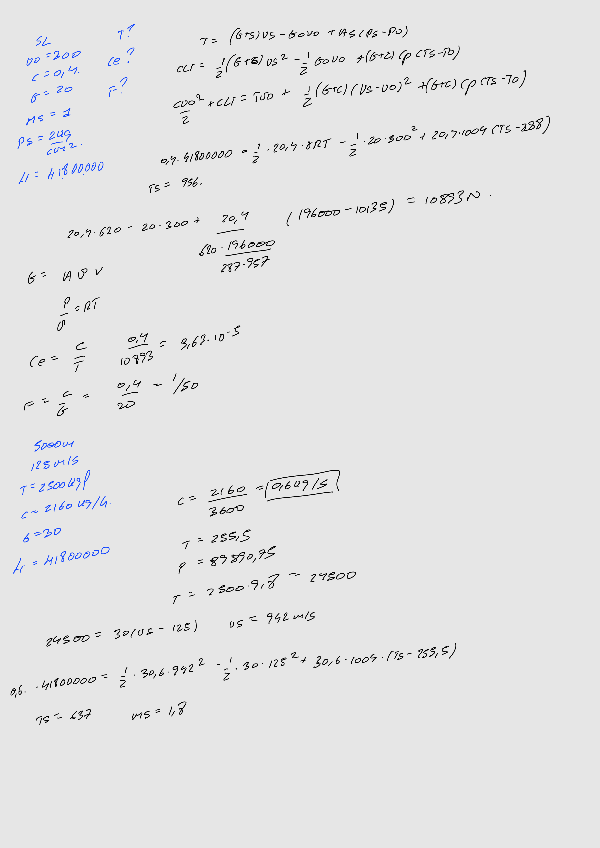 SL T?
v0 = 300 Ce?
C = 0,4. F?
G = 20
Ms = 1
Ps = 2kg/cm2.
Li = 41800000
T = (G+c)vs - Gov0 + As(Ps-P0)
CLi = 1/2(G+c)vs² - 1/2 Gov0 + (G+c)Cp(Ts-T0)
cv0²/2 + CLi = Tv0 + 1/2(G+c)(vs-v0)² + (G+c)Cp(Ts-T0)
0,4·41800000 = 1/2·20,4·γRT - 1/2·20·300² + 20,4·1004(Ts-288)
Ts = 956.
20,4·620 - 20·300 + 20,4/(620·196000/287·957) (196000-10135) = 10893N.
G = A ρ v
P/ρ = RT
Ce = C/T 0,4/10893 = 3,62·10-5
F = C/G = 0,4/20 - 1/50
5000m
128m/s
T = 2500kgf
C ~ 2160 kg/h.
G = 30
Li = 41800000
C = 2160/3600 = 0,6kg/s
T = 255,5
P = 89890,95
T = 2500·9,8 = 24500
24500 = 30(vs - 125) vs = 942m/s
0,6. ·41800000 = 1/2·30,6·942² - 1/2·30·125² + 30,6·1004·(Ts-255,5)
Ts = 637 Ms = 1,8